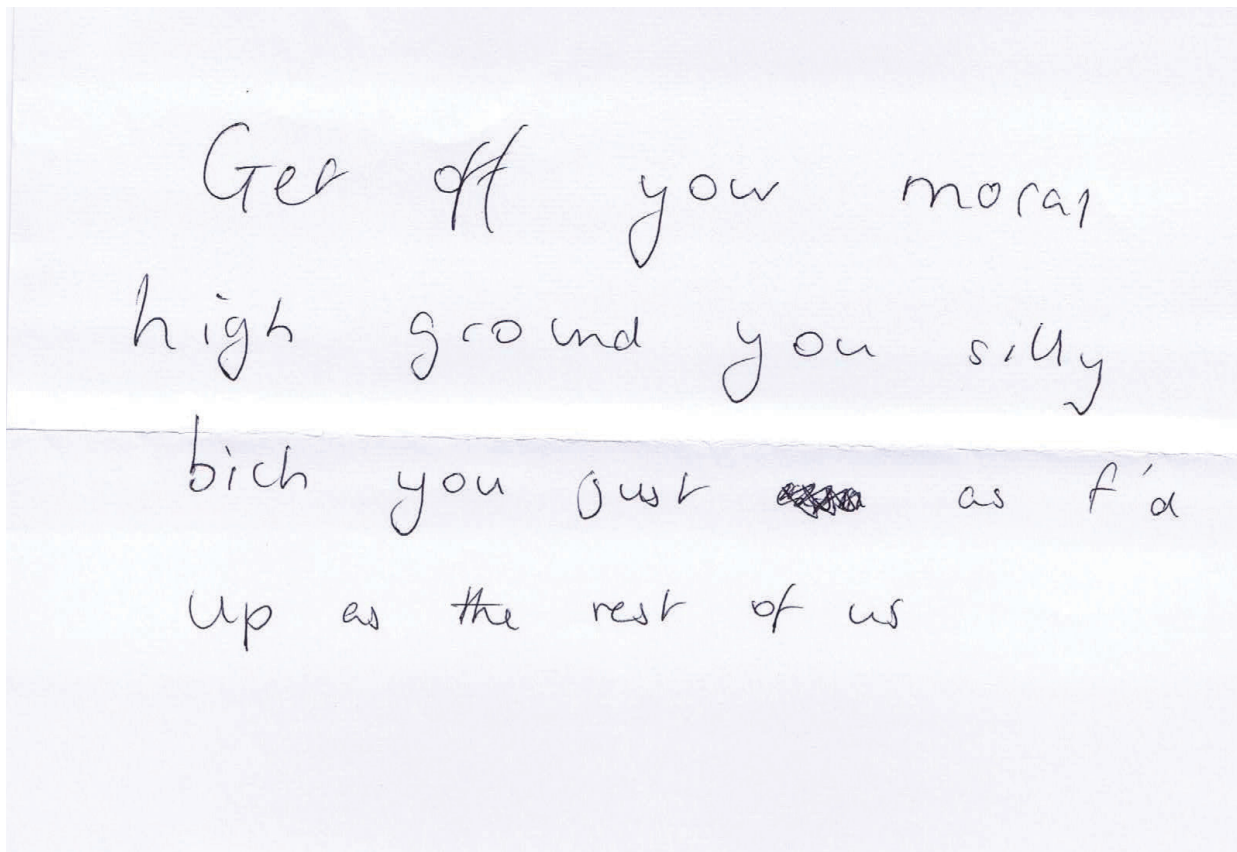 Get off your moral
high ground you silly
bich you just as f'd
up as the rest of us